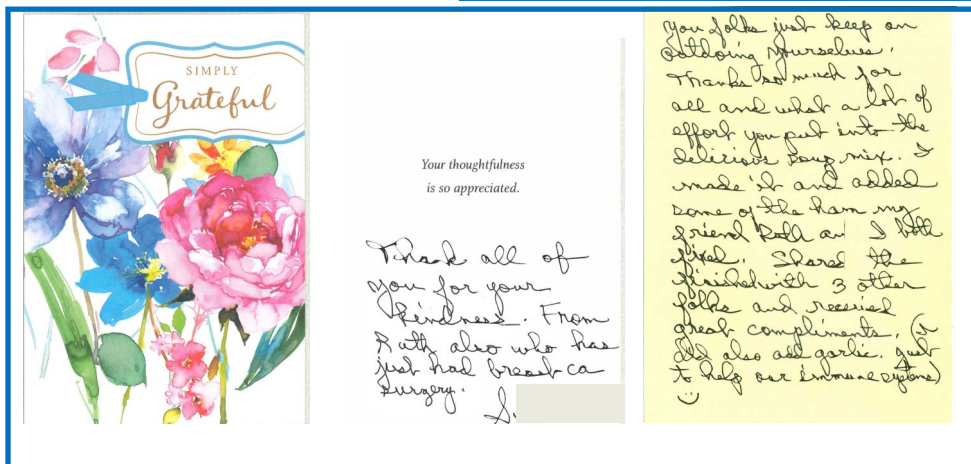 SIMPLY
Grateful
Your thoughtfulness
is so appreciated.
Thank all of
you for your
kindness. From
Ruth also who has
just had breast ca
surgery.
S.
You folks just keep on
outdoing yourselves.
Thanks so much for
all and what a lot of
effort you put into the
delicious soup mix. I
made it and added
some of the ham my
friend Ruth and I both
fixed. Shared the
finished with 3 other
folks and received
great compliments. (I
did also add garlic. Just
to help our immune systems)